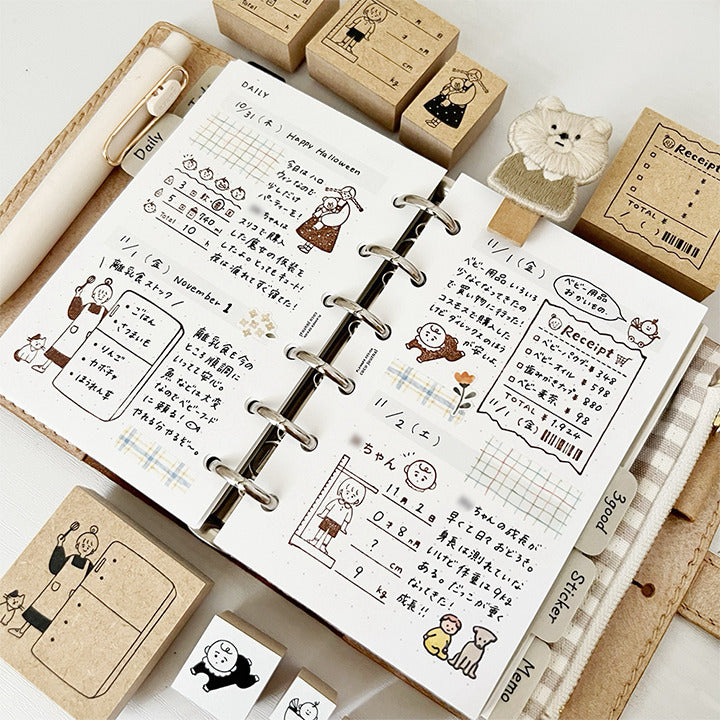 DAILY
10/31 (木) Happy Halloween
今日はハロ
ウィンなので
少しだけ
パーティーを!
ちゃんは
スリコで購入
した魔女の仮装を
したよ とってもキュート!
夜は疲れてすぐ寝てた!
3回
5回 740ml
Total 10 h
11/1 (金) November 1
離乳食ストック
・ごはん
・さつまいも
・りんご
・カボチャ
・ほうれん草
離乳食も今の
ところ順調に
いってて安心。
魚などは大変
なのでベビーフード
に頼る!
やれる分やるぞ〜。
11/1 (金)
ベビー用品いろいろ
少なくなってきたの
で買い物に行った!
コスモスで購入した
けどダレックスのほう
が安いな。
ベビー用品
おかいもの.
Receipt
ベビーオイル ¥ 598
歯みがきナップ ¥ 880
ベビー麦茶 ¥ 98
TOTAL ¥ 1.924
11/1 (金)
11/2 (土)
ちゃん
11月2日
0才8ヵ月
? cm
9 kg
ちゃんの成長が
早くて日々おどろき。
身長は測れていな
いけど体重は9kg
ある。だっこが重く
なってきた!
成長!!
Daily
3good
Sticker
Memo
Total h
月 日
才 ヵ月
cm
kg
Receipt
¥
¥
¥
TOTAL ¥
/ ( )